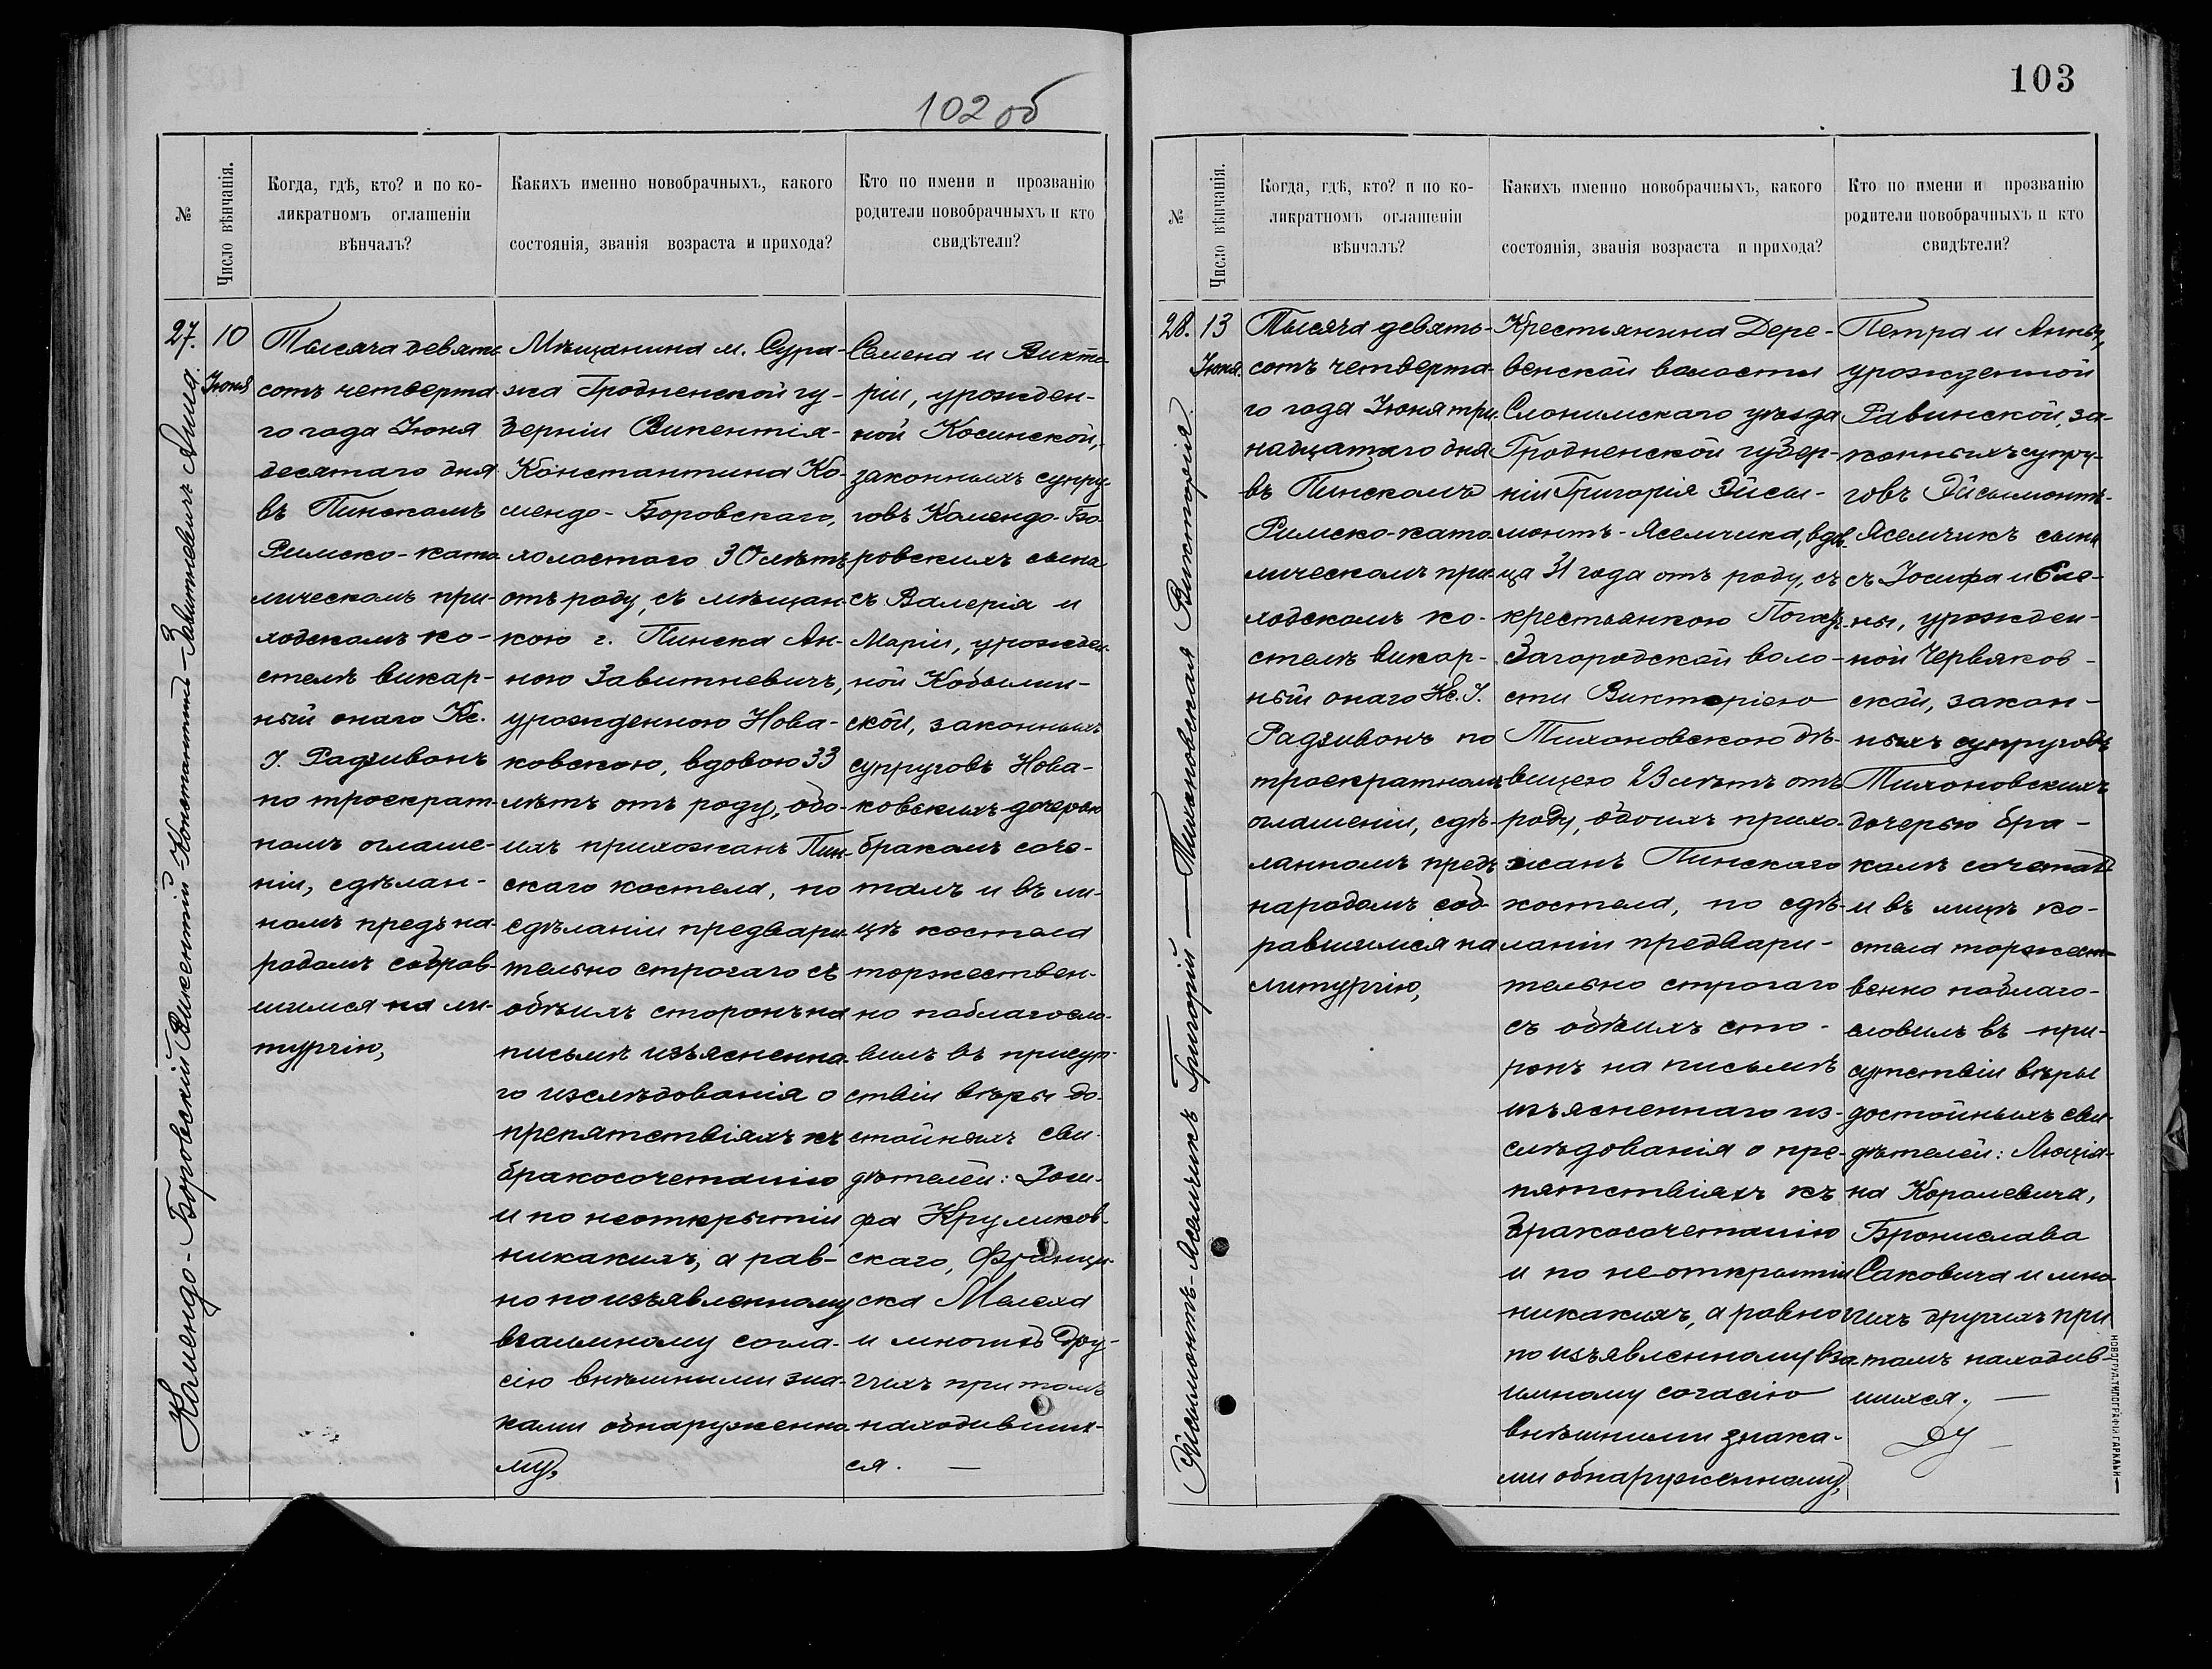 102 об
№
Число вѣнчанія.
Когда, гдѣ, кто? и по ко-
ликратномъ оглашеніи
вѣнчалъ?
Какихъ именно новобрачныхъ, какого
состоянія, званія возраста и прихода?
Кто по имени и прозванію
родители новобрачныхъ и кто
свидѣтели?
Комендо-Боровскій Викентій-Константинъ — Завитневичъ Анна.
27.
10
Іюня
Тысяча девять-
сотъ четверта-
го года Іюня
десятаго дня
въ Пинскомъ
Римско-като-
лическомъ при-
ходскомъ ко-
стелѣ викар-
ный онаго Кс.
І. Радзивонъ
по троекрат-
номъ оглаше-
ніи, сдѣлан-
номъ предъ на-
родомъ собрав-
шимся на ли-
тургію,
Мѣщанина м. Сура-
жа Гродненской гу-
берніи Викентія-
Константина Ко-
мендо-Боровскаго,
холостого 30 лѣтъ
отъ роду, съ мѣщан-
кою г. Пинска Ан-
ною Завитневичъ,
урожденною Нова-
ковскою, вдовою 33
лѣтъ отъ роду, обо-
ихъ прихожанъ Пин-
скаго костела, по
сдѣланіи предвари-
тельно строгаго съ
обѣихъ сторонъ на
письмѣ изъясненна-
го изслѣдованія о
препятствіяхъ къ
бракосочетанію
и по неоткрытіи
никакихъ, а рав-
но по изъявленному
взаимному согла-
сію внѣшними зна-
ками обнаруженно-
му,
Семена и Викто-
ріи, урожден-
ной Косинской,
законныхъ супру-
говъ Комендо-Бо-
ровскихъ сына
съ Валерія и
Маріи, урожден-
ной Кобылин-
ской, законныхъ
супруговъ Нова-
ковскихъ дочерью
бракомъ соче-
талъ и въ ли-
цѣ костела
торжествен-
но поблагосло-
вилъ въ присут-
ствіи вѣры до-
стойныхъ сви-
дѣтелей: Іоси-
фа Круликов-
скаго, Франци-
ска Мелеха
и многихъ дру-
гихъ притомъ
находивших-
ся. —
103
№
Число вѣнчанія.
Когда, гдѣ, кто? и по ко-
ликратномъ оглашеніи
вѣнчалъ?
Какихъ именно новобрачныхъ, какого
состоянія, званія возраста и прихода?
Кто по имени и прозванію
родители новобрачныхъ и кто
свидѣтели?
Эйсымонтъ-Яселчикъ Григорій — Тихоновская Викторія.
28.
13
Іюня.
Тысяча девять-
сотъ четверта-
го года Іюня три-
надцатаго дня
въ Пинскомъ
Римско-като-
лическомъ при-
ходскомъ ко-
стелѣ викар-
ный онаго Кс. І.
Радзивонъ по
троекратномъ
оглашеніи, сдѣ-
ланномъ предъ
народомъ соб-
равшимся на
литургію,
Крестьянина Дере-
венской волости
Слонимскаго уѣзда
Гродненской губер-
ніи Григорія Эйсы-
монтъ-Яселчика, вдов-
ца 31 года отъ роду, съ
крестьянкою
Загородской воло-
сти Викторіею
Тихоновскою дѣ-
вицею 23 лѣтъ отъ
роду, обоихъ прихо-
жанъ Пинскаго
костела, по сдѣ-
ланіи предвари-
тельно строгаго
съ обѣихъ сто-
ронъ на письмѣ
изъясненнаго из-
слѣдованія о пре-
пятствіяхъ къ
бракосочетанію
и по неоткрытіи
никакихъ, а равно
по изъявленному вза-
имному согасію
внѣшними знака-
ми обнаруженному,
Петра и Анны,
урожденной
Равинской, за-
конныхъ супру-
говъ Эйсымонтъ-
Яселчикъ сына
съ Іосифа и Еле-
ны, урожден-
ной Червяков-
ской, закон-
ныхъ супруговъ
Тихоновскихъ
дочерью бра-
комъ сочеталъ
и въ лицѣ ко-
стела торжест-
венно поблаго-
словилъ въ при-
сутствіи вѣры
достойныхъ сви-
дѣтелей: Люція-
на Королевича,
Бронислава
Саковича и мно-
гихъ другихъ при
томъ находив-
шихся. —
НОВОГРУД. ТИПОГРАФІЯ ГАРКАВИ